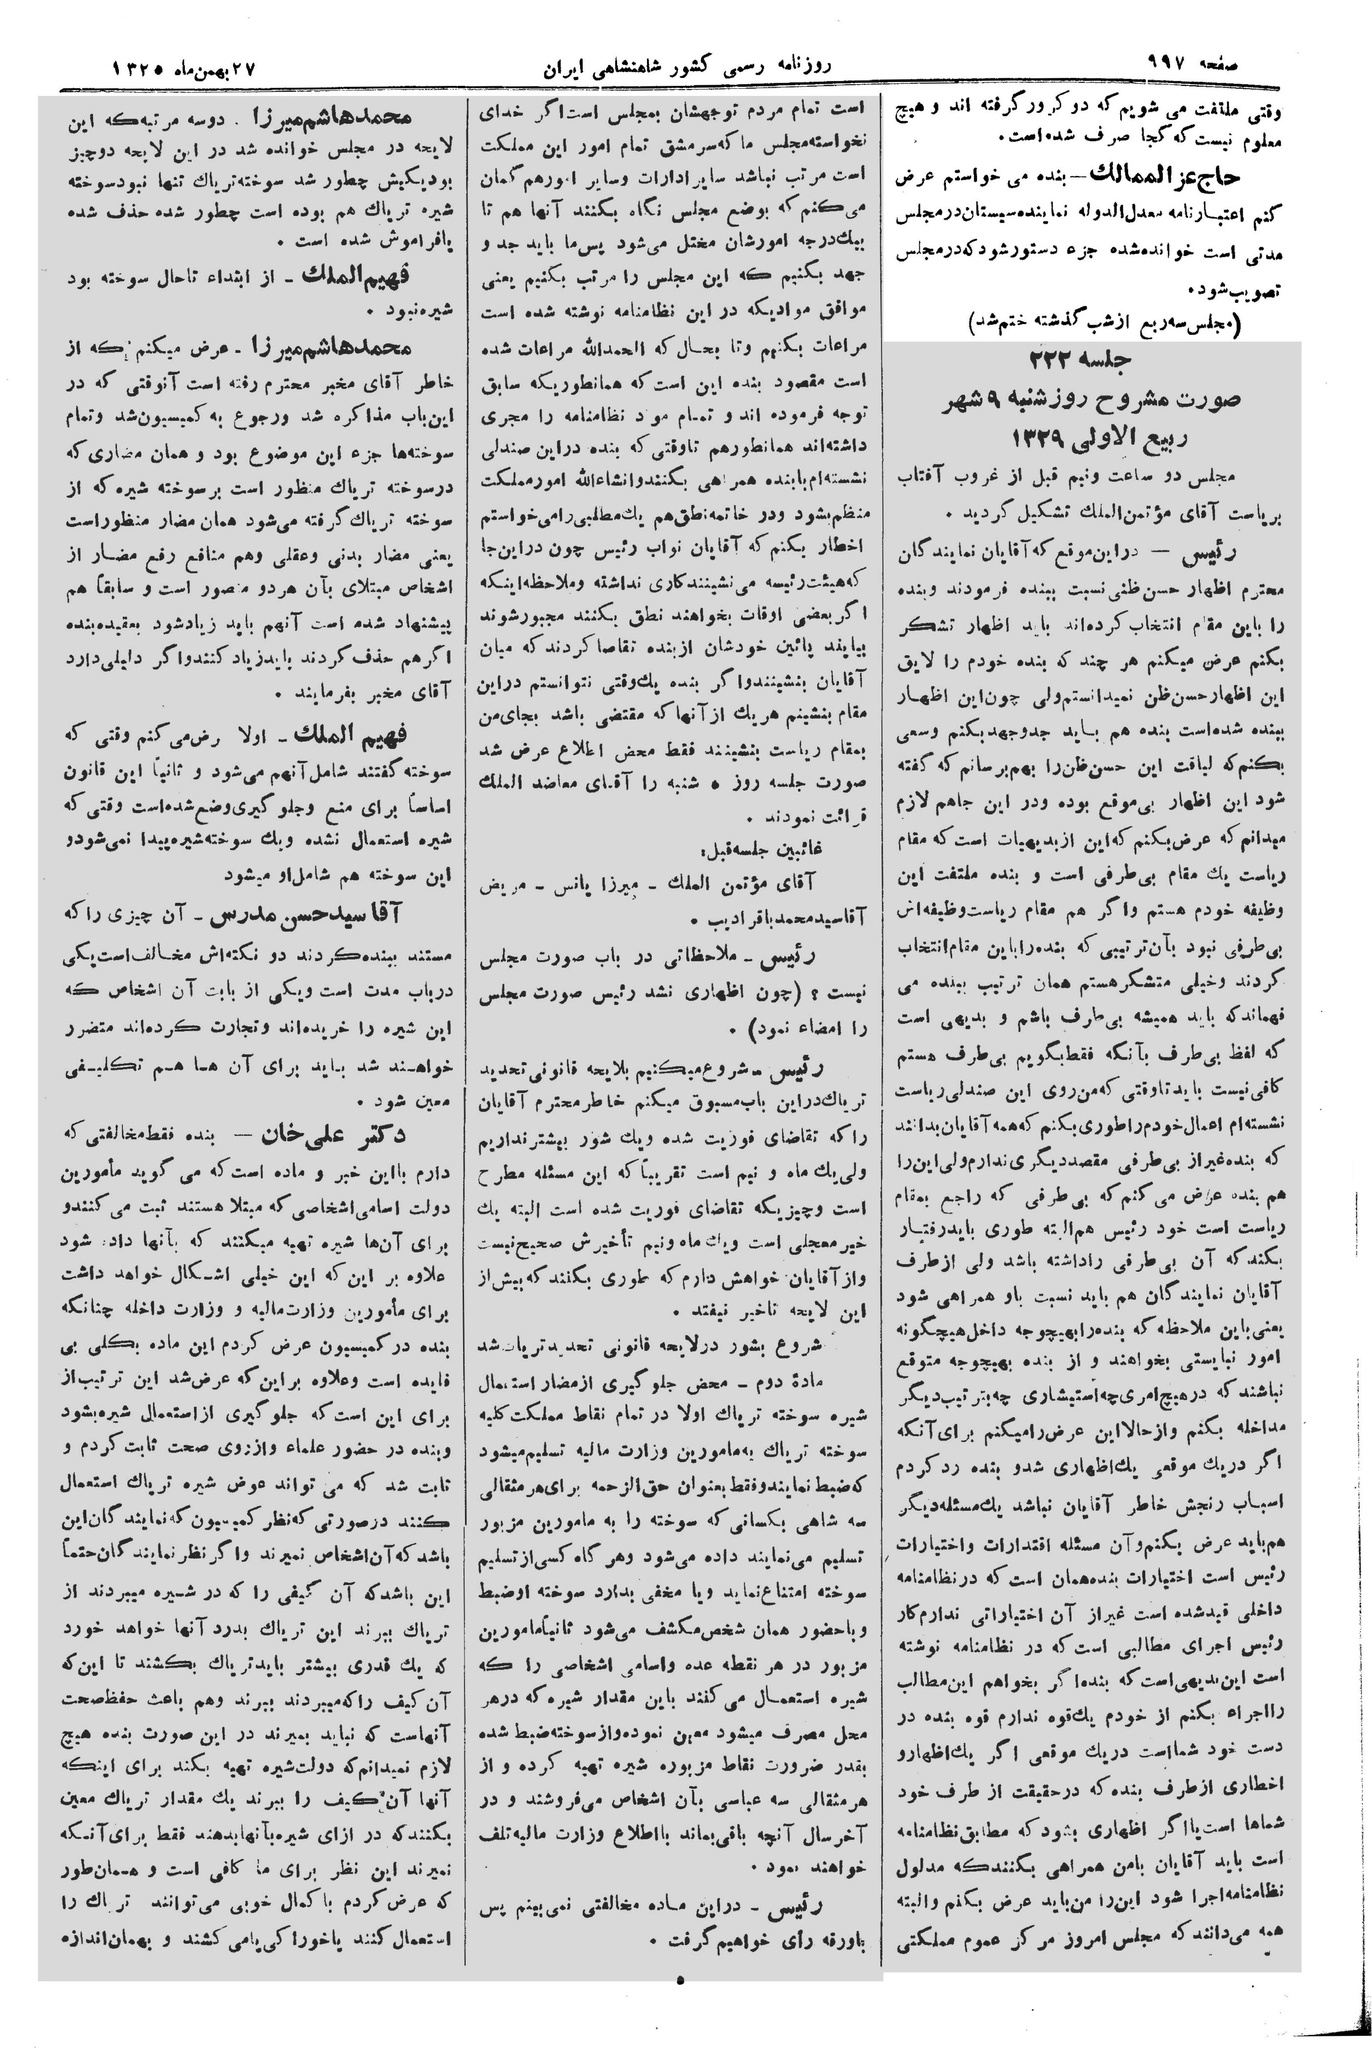 صفحه ۹۹۷
روزنامه رسمی کشور شاهنشاهی ایران
۲۷ بهمن ماه ۱۳۲۵
وقتی ملتفت می شویم که دو کرور گرفته اند و هیچ
معلوم نیست که کجا صرف شده است.
حاج عز الممالک – بنده می خواستم عرض
کنم اعتبارنامه معدل الدوله نماینده سیستان در مجلس
مدتی است خوانده شده جزء دستور شود که در مجلس
تصویب شود.
(مجلس سه ربع از شب گذشته ختم شد)
جلسه ۲۲۲
صورت مشروح روز شنبه ۹ شهر
ربیع الاولی ۱۳۲۹
مجلس دو ساعت و نیم قبل از غروب آفتاب
بریاست آقای مؤتمن الملک تشکیل گردید .
رئیس – در این موقع که آقایان نمایندگان
محترم اظهار حسن ظنی نسبت ببنده فرمودند و بنده
را باین مقام انتخاب کرده‌اند باید اظهار تشکر
بکنم عرض میکنم هر چند که بنده خودم را لایق
این اظهار حسن ظن نمیدانستم ولی چون این اظهار
ببنده شده است بنده هم باید جد و جهد بکنم و سعی
بکنم که لیاقت این حسن ظن را بهم برسانم که گفته
شود این اظهار بی موقع بوده و در این جا هم لازم
میدانم که عرض بکنم که این از بدیهیات است که مقام
ریاست یک مقام بی طرفی است و بنده ملتفت این
وظیفه خودم هستم و اگر هم مقام ریاست وظیفه‌اش
بی طرفی نبود بآن ترتیبی که بنده را باین مقام انتخاب
کردند و خیلی متشکر هستم همان ترتیب ببنده می
فهماند که باید همیشه بی طرف باشم و بدیهی است
که لفظ بی طرف بآنکه فقط بگویم بی طرف هستم
کافی نیست باید تا وقتی که من روی این صندلی ریاست
نشسته ام اعمال خودم را طوری بکنم که همه آقایان بدانند
که بنده غیر از بی طرفی مقصد دیگری ندارم ولی این را
هم بنده عرض می کنم که بی طرفی که راجع بمقام
ریاست است خود رئیس هم البته طوری باید رفتار
بکند که آن بی طرفی را داشته باشد ولی از طرف
آقایان نمایندگان هم باید نسبت باو همراهی شود
یعنی باین ملاحظه که بنده را بهیچوجه داخل هیچگونه
امور نبایستی بخواهند و از بنده بهیچوجه متوقع
نباشند که در هیچ امری چه استیشاری چه بترتیب دیگر
مداخله بکنم و از حالا این عرض را میکنم برای آنکه
اگر در یک موقعی یک اظهاری شد و بنده رد کردم
اسباب رنجش خاطر آقایان نباشد یک مسئله دیگر
هم باید عرض بکنم و آن مسئله اقتدارات و اختیارات
رئیس است اختیارات بنده همان است که در نظامنامه
داخلی قید شده است غیر از آن اختیاراتی ندارم کار
رئیس اجرای مطالبی است که در نظامنامه نوشته
است این بدیهی است که بنده اگر بخواهم این مطالب
را اجراء بکنم از خودم یک قوه ندارم قوه بنده در
دست خود شما است در یک موقعی اگر یک اظهار و
اخطاری از طرف بنده که در حقیقت از طرف خود
شماها است یا اگر اظهاری بشود که مطابق نظامنامه
است باید آقایان با من همراهی بکنند که مدلول
نظامنامه اجرا شود این را من باید عرض بکنم و البته
همه می‌دانند که مجلس امروز مرکز عموم مملکتی
است تمام مردم توجهشان بمجلس است اگر خدای
نخواسته مجلس ما که سر مشق تمام امور این مملکت
است مرتب نباشد سایر ادارات و سایر امور هم گمان
می‌کنم که بوضع مجلس نگاه بکنند آنها هم تا
بیک درجه امورشان مختل می‌شود پس ما باید جد و
جهد بکنیم که این مجلس را مرتب بکنیم یعنی
موافق موادیکه در این نظامنامه نوشته شده است
مراعات بکنیم و تا بحال که الحمدالله مراعات شده
است مقصود بنده این است که همانطوریکه سابق
توجه فرموده اند و تمام مواد نظامنامه را مجری
داشته‌اند همانطور هم تا وقتی که بنده در این صندلی
نشسته ام با بنده همراهی بکنند و انشاءالله امور مملکت
منظم بشود و در خاتمه نطق هم یک مطلبی را می خواستم
اخطار بکنم که آقایان نواب رئیس چون در این جا
که هیئت رئیسه می نشینند کاری نداشته و ملاحظه اینکه
اگر بعضی اوقات بخواهند نطق بکنند مجبور شوند
بیایند پائین خودشان از بنده تقاضا کردند که میان
آقایان بنشینند و اگر بنده یک وقتی نتوانستم در این
مقام بنشینم هر یک از آنها که مقتضی باشد بجای من
بمقام ریاست بنشینند فقط محض اطلاع عرض شد
صورت جلسه روز ۵ شنبه را آقای معاضد الملک
قرائت نمودند .
غائبین جلسه قبل:
آقای مؤتمن الملک - میرزا یانس - مریض
آقا سید محمد باقر ادیب .
رئیس - ملاحظاتی در باب صورت مجلس
نیست ؟ (چون اظهاری نشد رئیس صورت مجلس
را امضاء نمود) .
رئیس - شروع میکنیم بلایحه قانونی تحدید
تریاک در این باب مسبوق میکنم خاطر محترم آقایان
را که تقاضای فوریت شده و یک شور بیشتر نداریم
ولی یک ماه و نیم است تقریباً که این مسئله مطرح
است و چیزیکه تقاضای فوریت شده است البته یک
خیر معجلی است و یک ماه و نیم تأخیرش صحیح نیست
و از آقایان خواهش دارم که طوری بکنند که بیش از
این لایحه تاخیر نیفتد .
شروع بشور در لایحه قانونی تحدید تریاک شد
مادۀ دوم - محض جلوگیری از مضار استعمال
شیره سوخته تریاک اولا در تمام نقاط مملکت کلیه
سوخته تریاک به مامورین وزارت مالیه تسلیم میشود
که ضبط نمایند و فقط بعنوان حق الزحمه برای هر مثقالی
سه شاهی بکسانی که سوخته را به مامورین مزبور
تسلیم می‌نمایند داده می‌شود و هر گاه کسی از تسلیم
سوخته امتناع نماید و یا مخفی بدارد سوخته او ضبط
و با حضور همان شخص مکشف می‌شود ثانیاً مامورین
مزبور در هر نقطه عده و اسامی اشخاصی را که
شیره استعمال می کنند باین مقدار شیره که در هر
محل مصرف میشود معین نموده و از سوخته ضبط شده
بقدر ضرورت نقاط مزبوره شیره تهیه کرده و از
هر مثقالی سه عباسی بآن اشخاص می‌فروشند و در
آخر سال آنچه باقی بماند با اطلاع وزارت مالیه تلف
خواهند نمود .
رئیس - در این ماده مخالفتی نمی‌بینم پس
باورقه رأی خواهیم گرفت .
محمد هاشم میرزا . دو سه مرتبه که این
لایحه در مجلس خوانده شد در این لایحه دو چیز
بود یکیش چطور شد سوخته تریاک تنها نبود سوخته
شیره تریاک هم بوده است چطور شده حذف شده
یا فراموش شده است .
فهیم الملک - از ابتداء تا حال سوخته بود
شیره نبود .
محمد هاشم میرزا - عرض میکنم که از
خاطر آقای مخبر محترم رفته است آنوقتی که در
این باب مذاکره شد و رجوع به کمیسیون شد و تمام
سوخته‌ها جزء این موضوع بود و همان مضاری که
در سوخته تریاک منظور است بر سوخته شیره که از
سوخته تریاک گرفته می‌شود همان مضار منظور است
یعنی مضار بدنی و عقلی و هم منافع رفع مضار از
اشخاص مبتلای بآن هر دو متصور است و سابقاً هم
پیشنهاد شده است آنهم باید زیاد شود بعقیده بنده
اگر هم حذف کردند باید زیاد کنند و اگر دلیلی دارد
آقای مخبر بفرمایند .
فهیم الملک - اولا عرض می کنم وقتی که
سوخته گفتند شامل آنهم می‌شود و ثانیاً این قانون
اساساً برای منع و جلوگیری وضع شده است وقتی که
شیره استعمال نشده و یک سوخته شیره پیدا نمی‌شود و
این سوخته هم شامل او میشود
آقا سید حسن مدرس - آن چیزی را که
مستند ببنده کردند دو نکته‌اش مخالف است یکی
در باب مدت است و یکی از بابت آن اشخاص که
این شیره را خریده‌اند و تجارت کرده‌اند متضرر
خواهند شد باید برای آن ها هم تکلیفی
معین شود .
دکتر علی خان – بنده فقط مخالفتی که
دارم با این خبر و ماده است که می گوید مأمورین
دولت اسامی اشخاصی که مبتلا هستند ثبت می کنند و
برای آن‌ها شیره تهیه میکنند که بآنها داده شود
علاوه بر این که این خیلی اشکال خواهد داشت
برای مأمورین وزارت مالیه و وزارت داخله چنانکه
بنده در کمیسیون عرض کردم این ماده بکلی بی
فایده است و علاوه بر این که عرض شد این ترتیب از
برای این است که جلوگیری از استعمال شیره بشود
و بنده در حضور علماء و از روی صحت ثابت کردم و
ثابت شد که می تواند عوض شیره تریاک استعمال
کنند در صورتی که نظر کمیسیون که نمایندگان این
باشد که آن اشخاص نمیرند و اگر نظر نمایندگان حتماً
این باشد که آن کیفی را که در شیره میبردند از
تریاک ببرند این تریاک بدرد آنها خواهد خورد
که یک قدری بیشتر باید تریاک بکشند تا این که
آن کیف را که میبردند ببرند و هم باعث حفظ صحت
آنهاست که نباید بمیرند در این صورت بنده هیچ
لازم نمیدانم که دولت شیره تهیه بکند برای اینکه
آنها آن کیف را ببرند یک مقدار تریاک معین
بکنند که در ازای شیره بآنها بدهند فقط برای آنکه
نمیرند این نظر برای ما کافی است و همان طور
که عرض کردم با کمال خوبی می‌توانند تریاک را
استعمال کنند یا خوراکی یا می کشند و بهمان اندازه